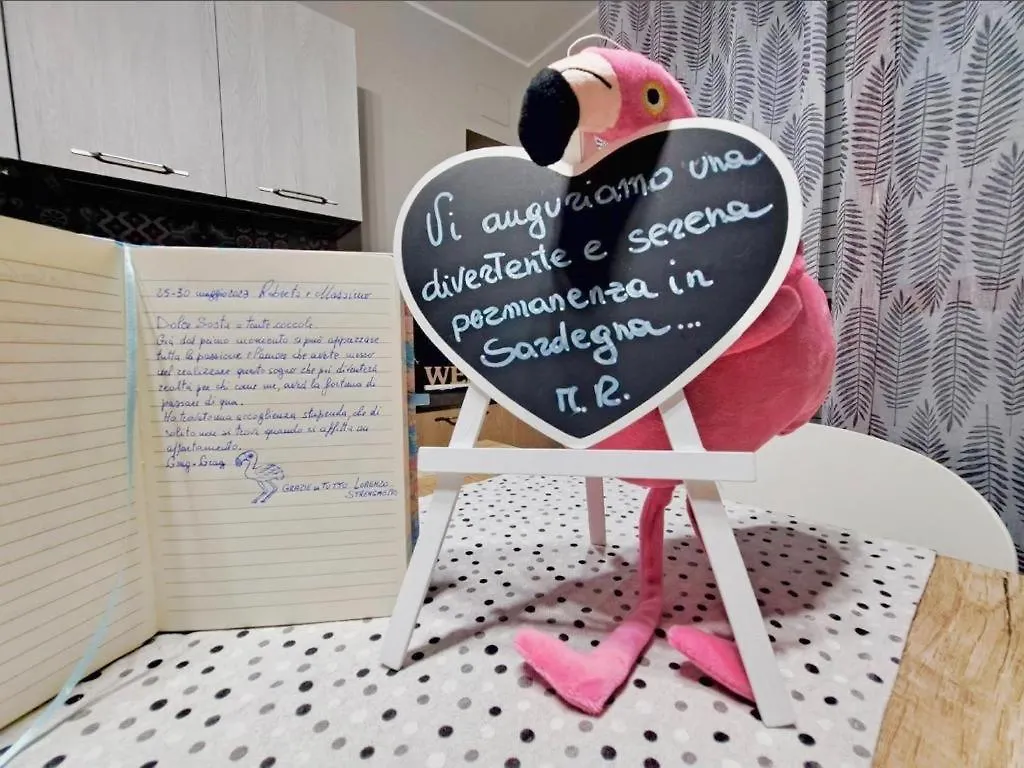 25-30 maggio 2023 Roberta e Massimo
Dolce Sosta e tante coccole.
Già dal primo momento si può apprezzare
tutta la passione e l'amore che avete messo
nel realizzare questo sogno che poi diventerà
realtà per chi come me, avrà la fortuna di
passare di qua.
Ho trovato una accoglienza stupenda, che di
solito non si trova quando si affitta un
appartamento.
GRAZIE di TUTTO LORENZO
Vi auguriamo una
divertente e serena
permanenza in
Sardegna...
M. R.
WE